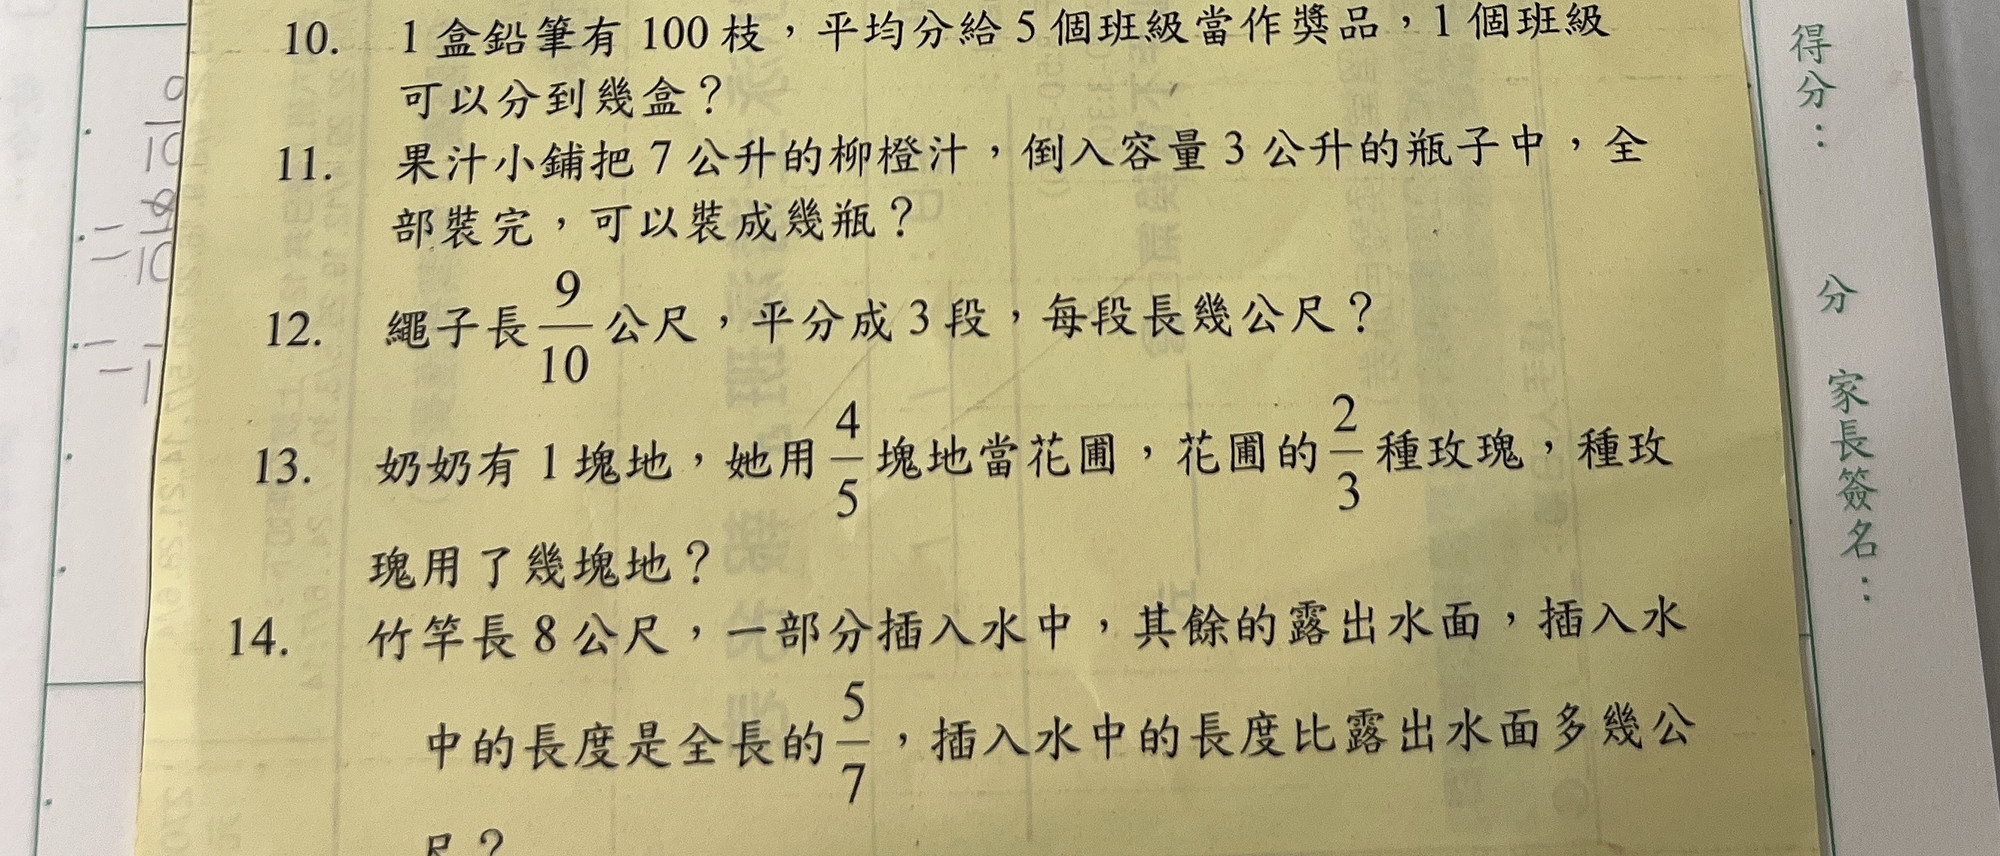 10. 1盒鉛筆有100枝，平均分給5個班級當作獎品，1個班級
可以分到幾盒？
11. 果汁小鋪把7公升的柳橙汁，倒入容量3公升的瓶子中，全
部裝完，可以裝成幾瓶？
12. 繩子長9/10公尺，平分成3段，每段長幾公尺？
13. 奶奶有1塊地，她用4/5塊地當花圃，花圃的2/3種玫瑰，種玫
瑰用了幾塊地？
14. 竹竿長8公尺，一部分插入水中，其餘的露出水面，插入水
中的長度是全長的5/7，插入水中的長度比露出水面多幾公
尺？
得分： 分 家長簽名：